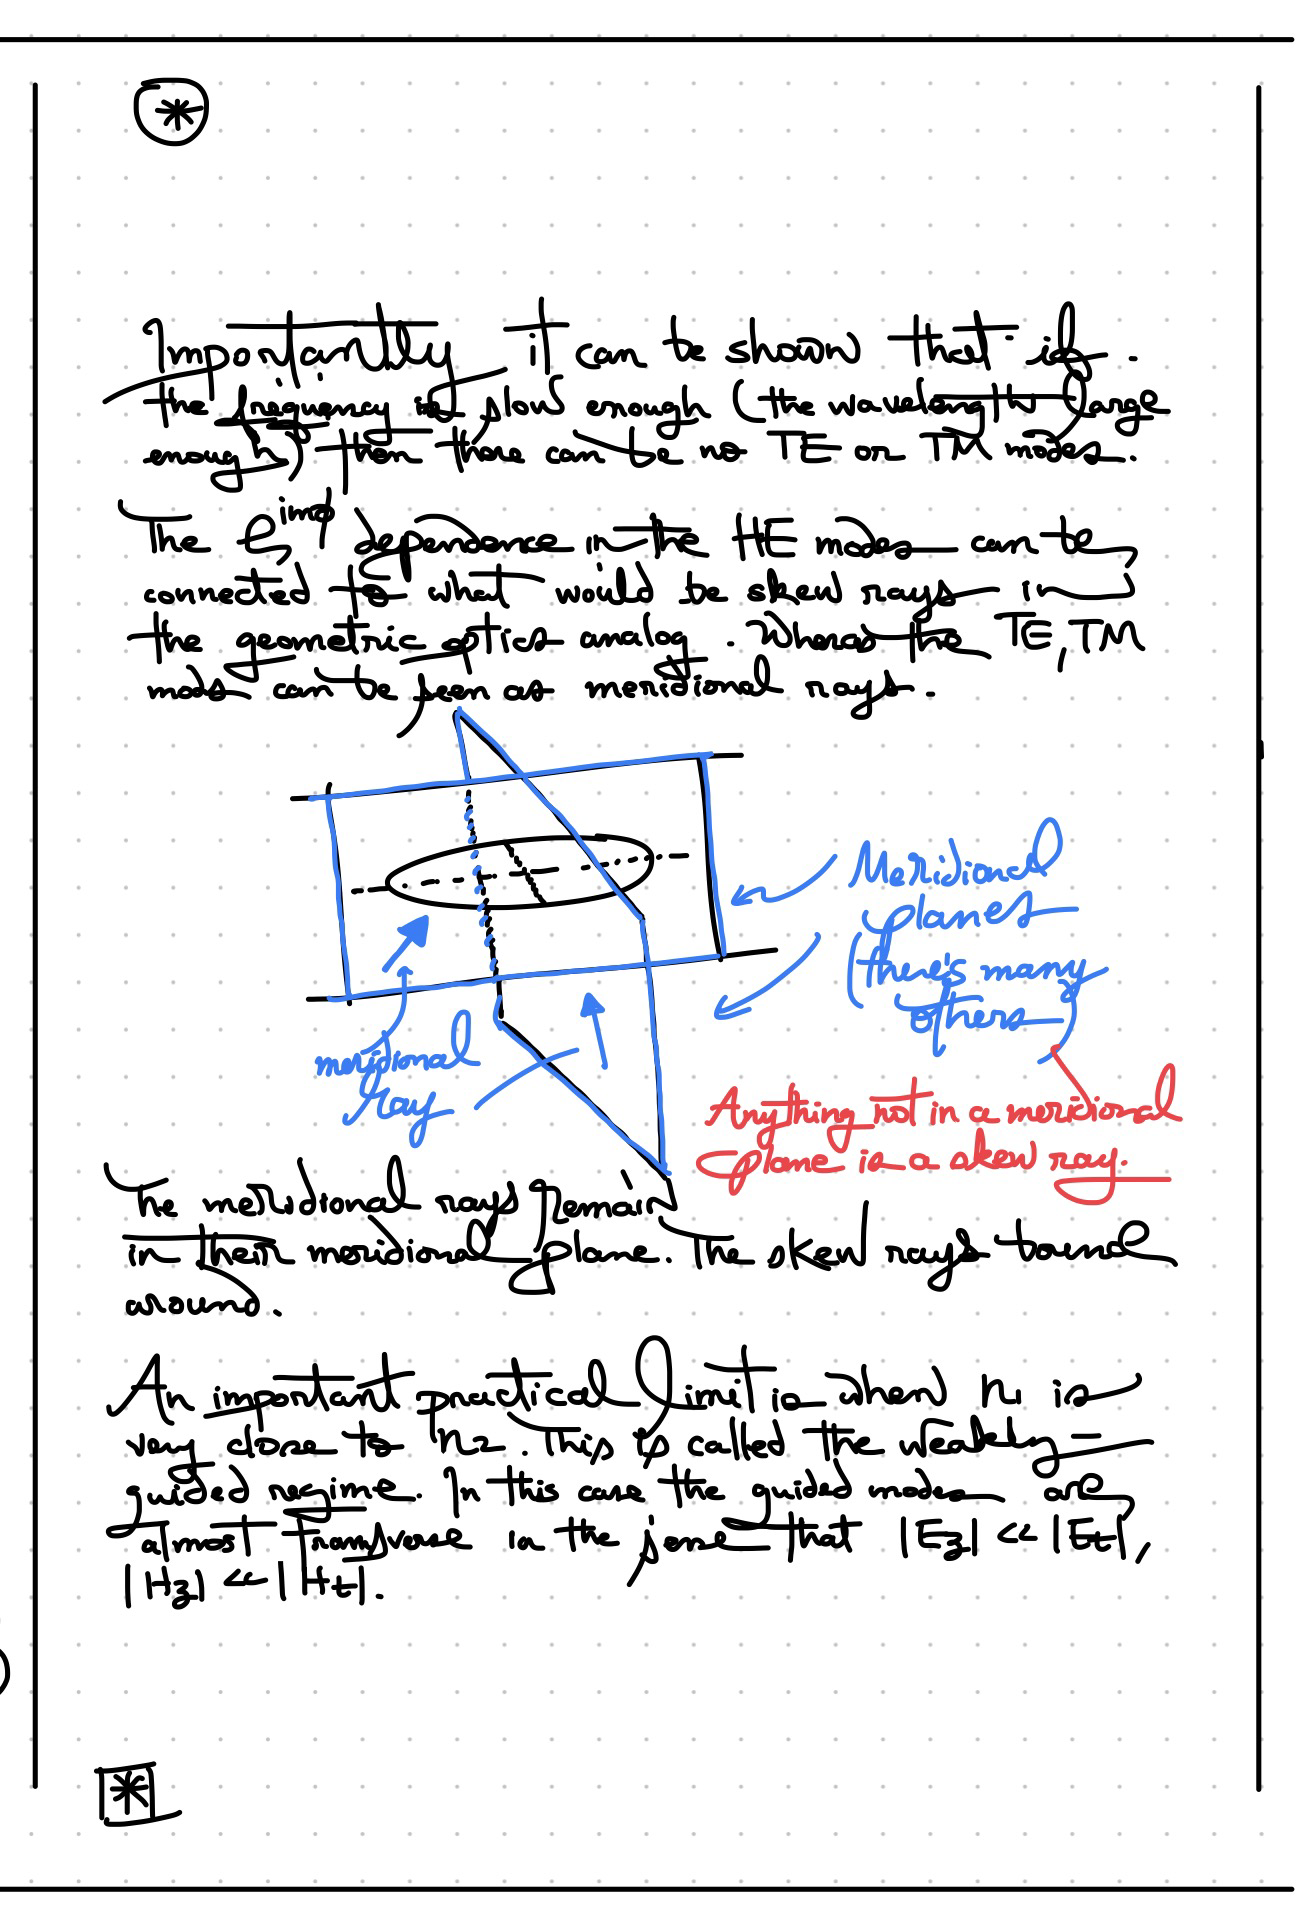 Importantly it can be shown that if
the frequency is slow enough (the wavelength large
enough) then there can be no TE or TM modes.
The e^{imφ} dependence in the HE modes can be
connected to what would be skew rays in
the geometric optics analog. Whereas the TE, TM
modes can be seen as meridional rays.
Meridional
planes
(there's many
others)
meridional
ray
Anything not in a meridional
plane is a skew ray.
The meridional rays remain
in their meridional plane. The skew rays bounce
around.
An important practical limit is when n1 is
very close to n2. This is called the weakly-
guided regime. In this case the guided modes are
almost transverse in the sense that |Ez| << |Et|,
|Hz| << |Ht|.